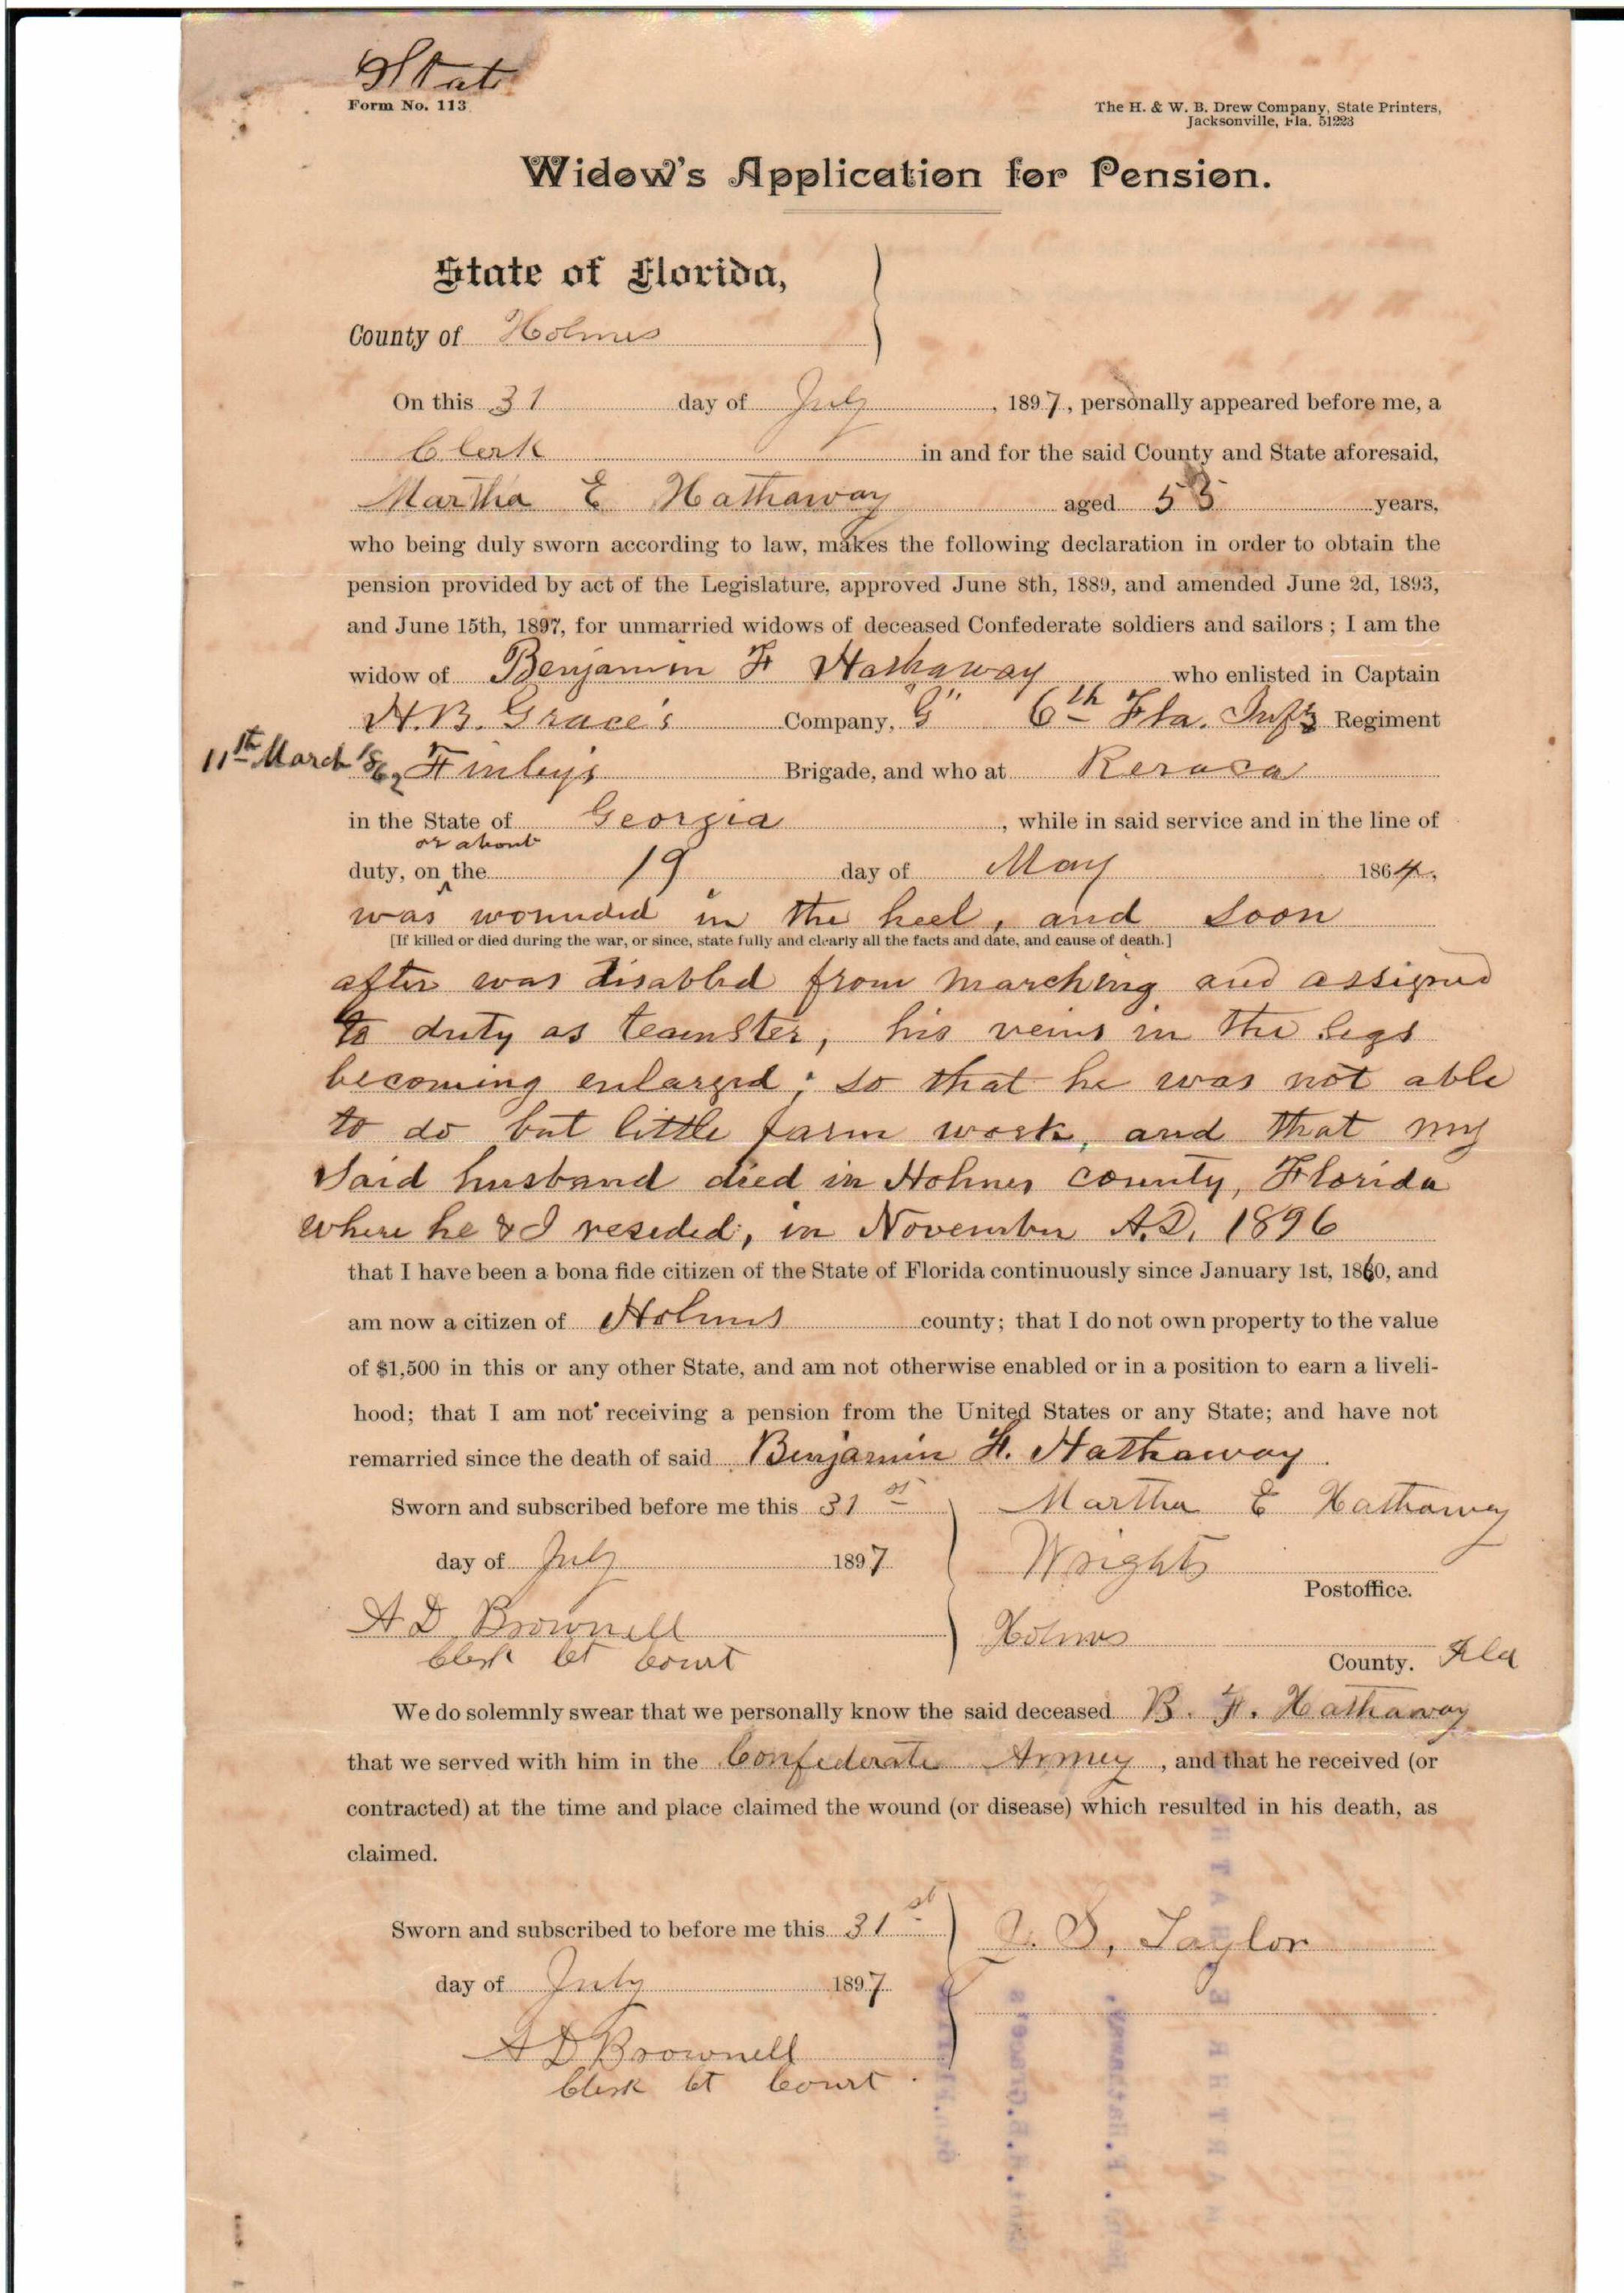 State
Form No. 113
The H. & W. B. Drew Company, State Printers,
Jacksonville, Fla. 51223
Widow's Application for Pension.
State of Florida,
County of Holmes
On this 31 day of July, 1897, personally appeared before me, a
Clerk in and for the said County and State aforesaid,
Martha E Hathaway aged 53 years,
who being duly sworn according to law, makes the following declaration in order to obtain the
pension provided by act of the Legislature, approved June 8th, 1889, and amended June 2d, 1893,
and June 15th, 1897, for unmarried widows of deceased Confederate soldiers and sailors; I am the
widow of Benjamin F Hathaway who enlisted in Captain
H.B. Grace's Company, "G" 6th Fla. Infy Regiment
11th March 1862 Finleys Brigade, and who at Reraca
in the State of Georgia, while in said service and in the line of
or about
duty, on the 19 day of May 1864,
was wounded in the heel, and soon
[If killed or died during the war, or since, state fully and clearly all the facts and date, and cause of death.]
after was disabled from marching and assigned
to duty as teamster, his veins in the legs
becoming enlarged; so that he was not able
to do but little farm work, and that my
said husband died in Holmes county, Florida
where he & I resided, in November A.D. 1896
that I have been a bona fide citizen of the State of Florida continuously since January 1st, 1860, and
am now a citizen of Holmes county; that I do not own property to the value
of $1,500 in this or any other State, and am not otherwise enabled or in a position to earn a liveli-
hood; that I am not receiving a pension from the United States or any State; and have not
remarried since the death of said Benjamin F. Hathaway.
Sworn and subscribed before me this 31st Martha E Hathaway
day of July 1897 Wrights
Postoffice.
A D Brownell Holmes
Clerk Ct Court County. Fla
We do solemnly swear that we personally know the said deceased B. F. Hathaway
that we served with him in the Confederate Army, and that he received (or
contracted) at the time and place claimed the wound (or disease) which resulted in his death, as
claimed.
Sworn and subscribed to before me this 31st S. Taylor
day of July 1897
A D Brownell
Clerk Ct Court.